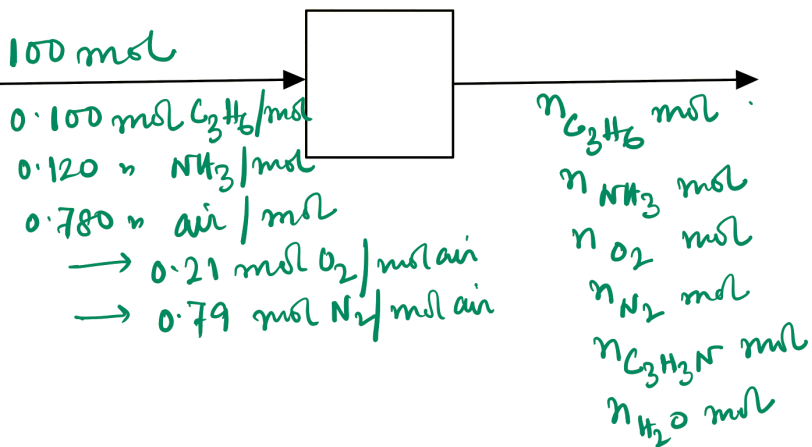 100 mol
0.100 mol C₃H₆/mol
0.120 " NH₃/mol
0.780 " air / mol
→ 0.21 mol O₂/mol air
→ 0.79 mol N₂/mol air
n_C₃H₆ mol .
n_NH₃ mol
n_O₂ mol
n_N₂ mol
n_C₃H₃N mol
n_H₂O mol